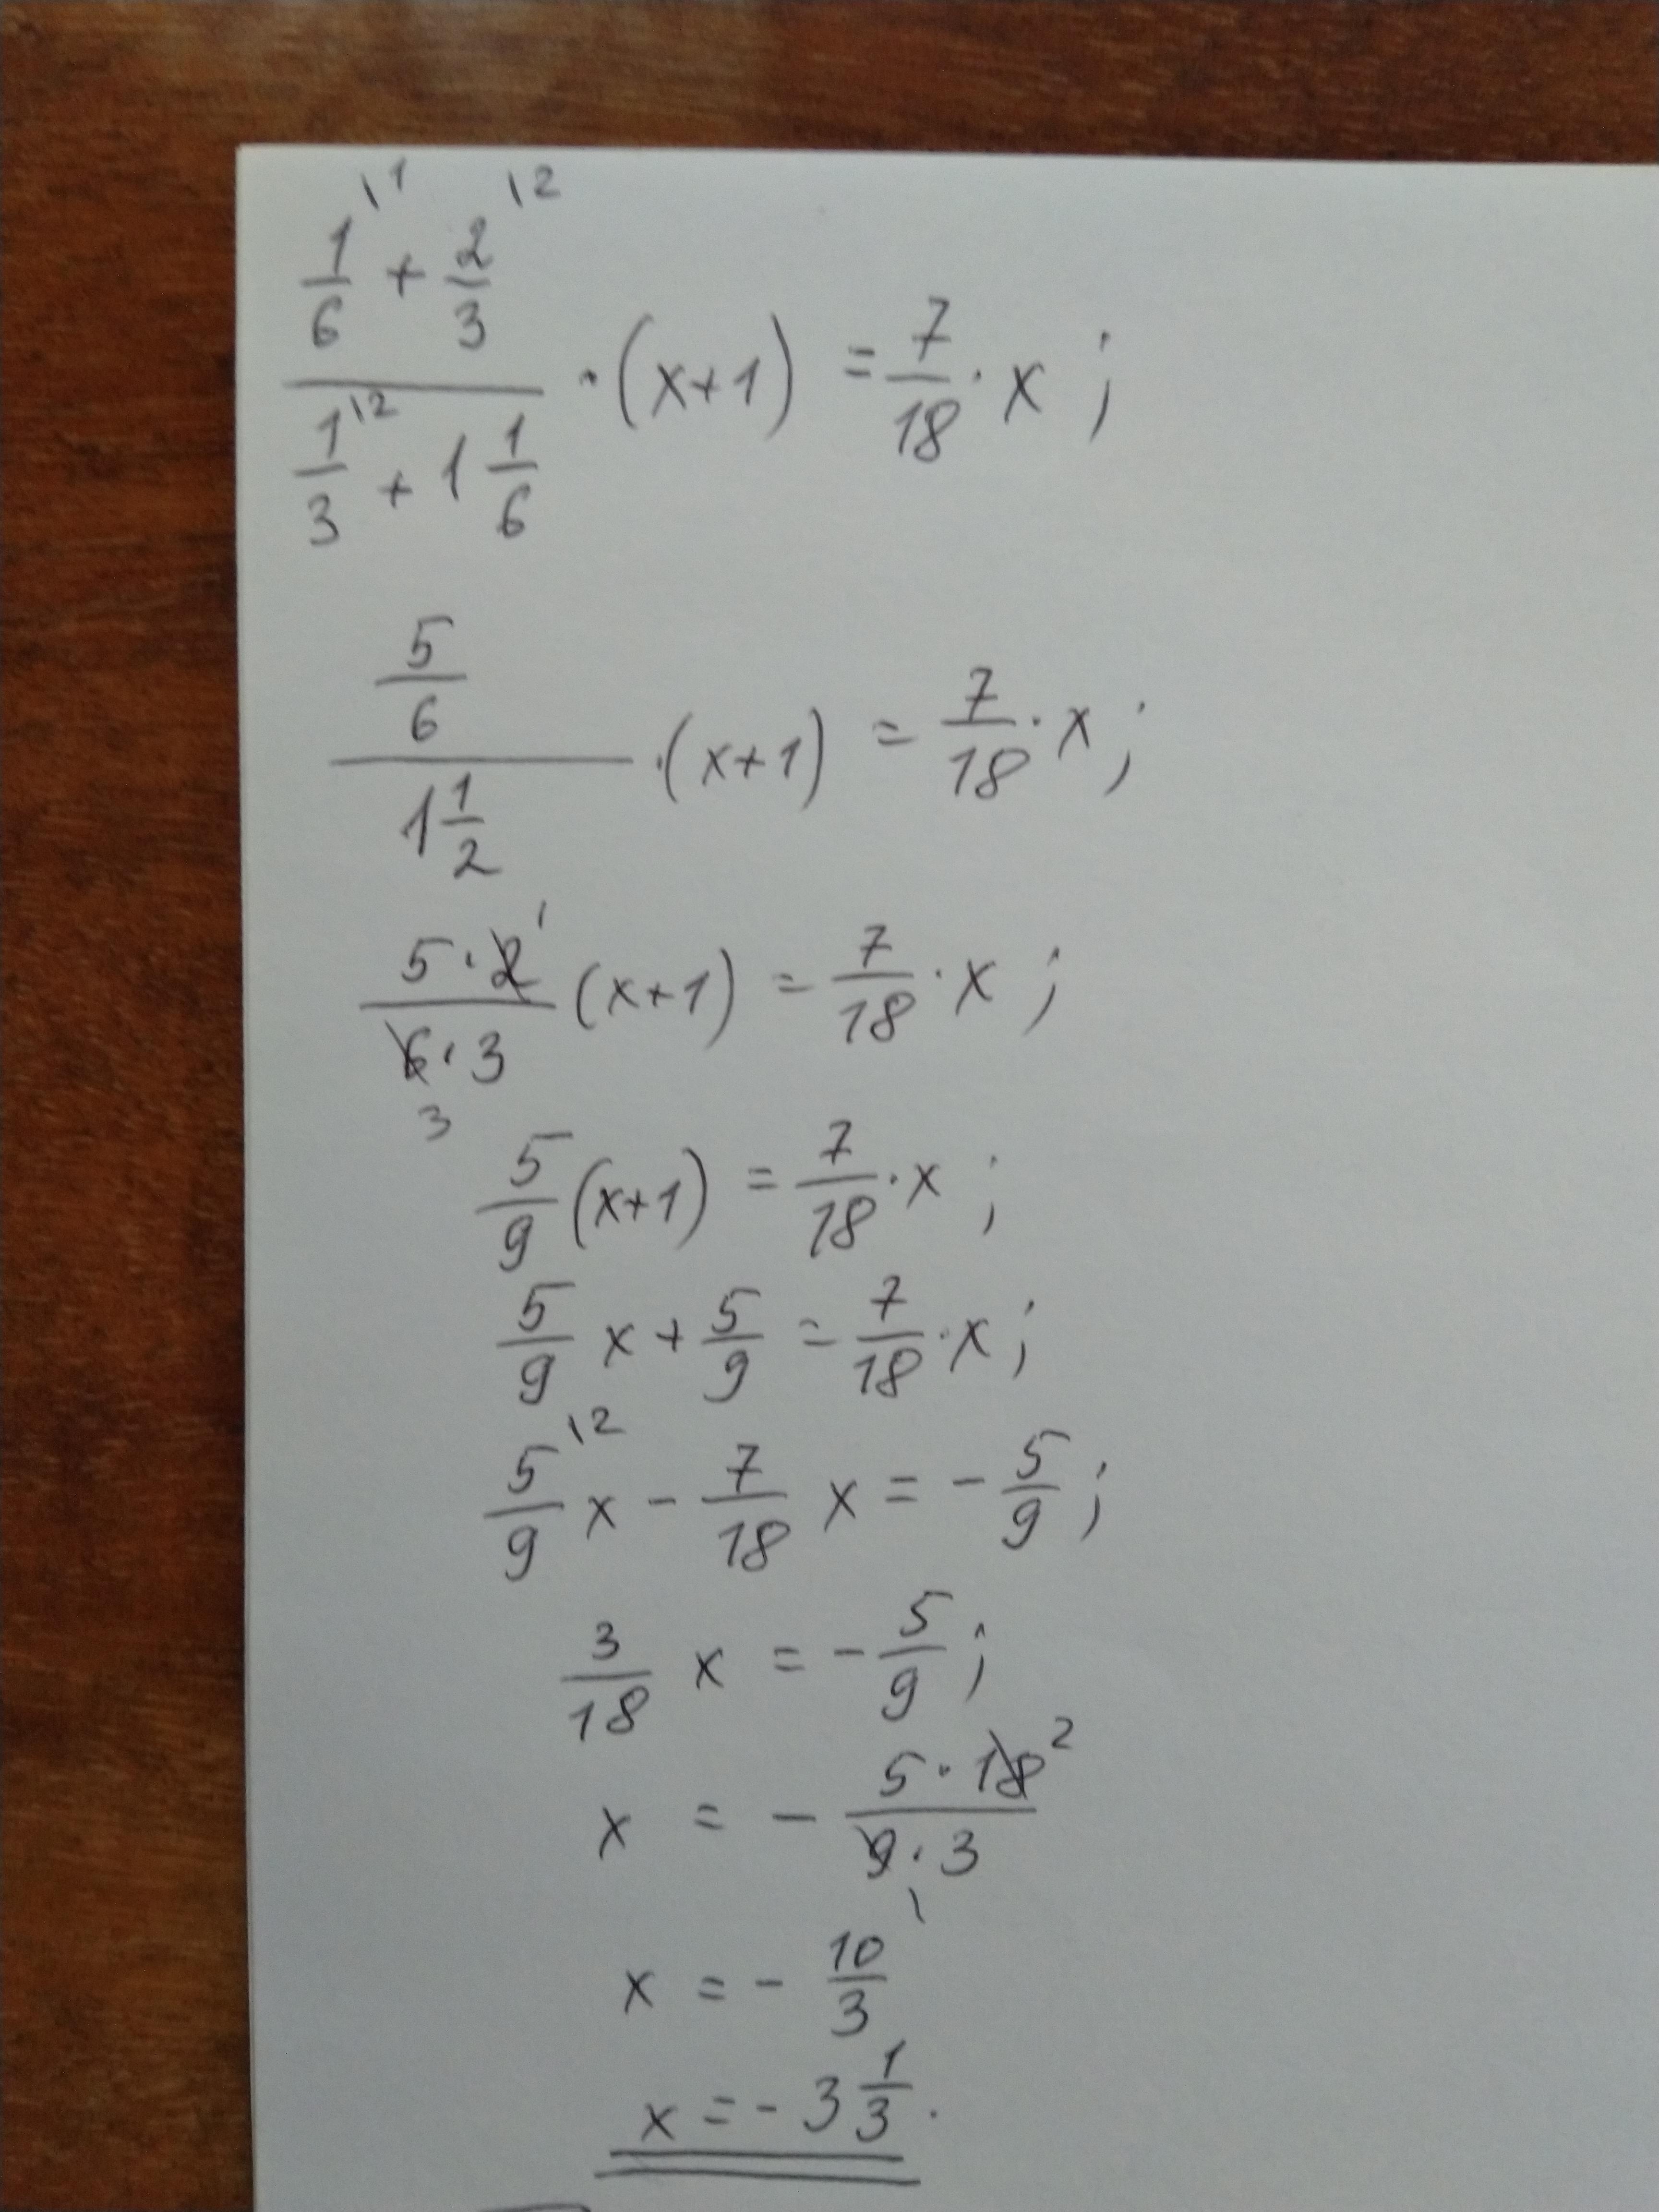 \frac{\frac{1}{6}^{\backslash 1} + \frac{2}{3}^{\backslash 2}}{\frac{1}{3}^{\backslash 2} + 1\frac{1}{6}} \cdot (x+1) = \frac{7}{18} \cdot x ;
\frac{\frac{5}{6}}{1\frac{1}{2}} \cdot (x+1) = \frac{7}{18} \cdot x ;
\frac{5 \cdot \cancel{2}^{1}}{\cancel{6}_{3} \cdot 3} (x+1) = \frac{7}{18} \cdot x ;
\frac{5}{9} (x+1) = \frac{7}{18} \cdot x ;
\frac{5}{9} x + \frac{5}{9} = \frac{7}{18} \cdot x ;
\frac{5}{9}^{\backslash 2} x - \frac{7}{18} x = - \frac{5}{9} ;
\frac{3}{18} x = - \frac{5}{9} ;
x = - \frac{5 \cdot \cancel{18}^{2}}{\cancel{9}_{1} \cdot 3}
x = - \frac{10}{3}
x = - 3\frac{1}{3} .